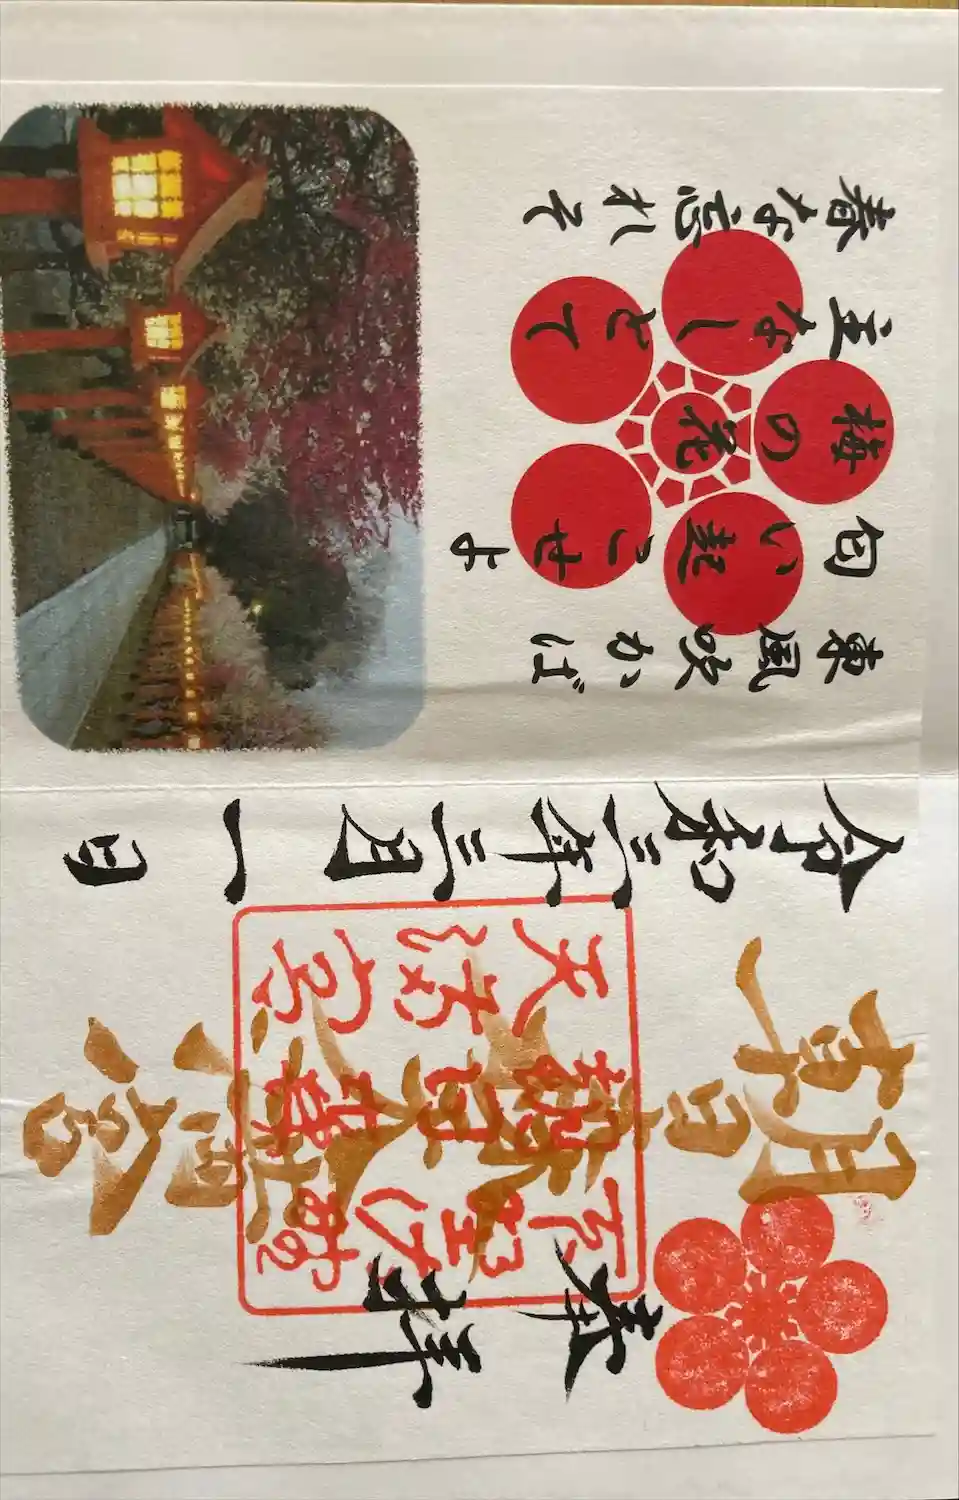 奉拝
朝日森天満宮
令和三年三月一日
東風吹かば
匂い起こせよ
梅の花
主なしとて
春な忘れそ